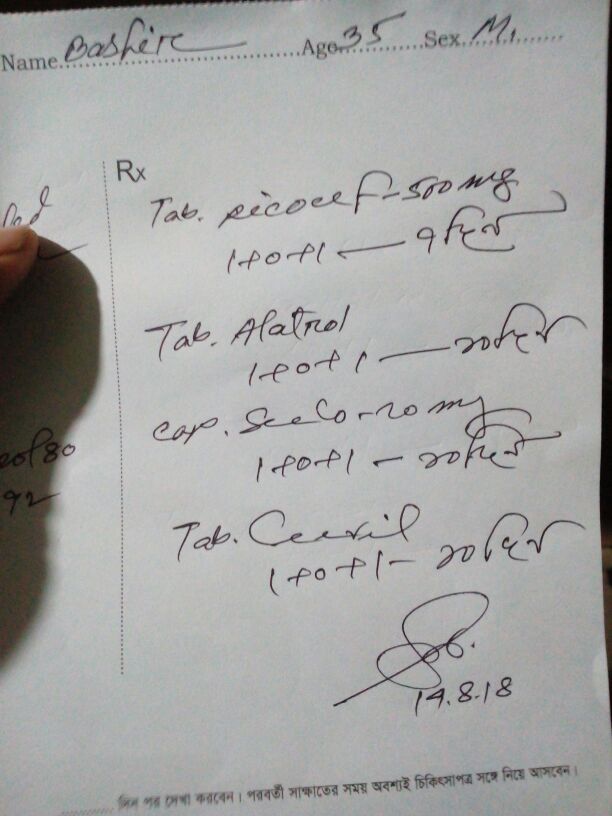 Name Bashir Age 35 Sex M.
Rx
Tab. 500 mg
1+0+1 — ৭ দিন
Tab. Alatrol
1+0+1 — ২০ দিন
Cap. Seclo - 20 mg
1+0+1 - ২০ দিন
Tab.
1+0+1 - ২০ দিন
14.8.18
দিন পর দেখা করবেন। পরবর্তী সাক্ষাতের সময় অবশ্যই চিকিৎসাপত্র সঙ্গে নিয়ে আসবেন।